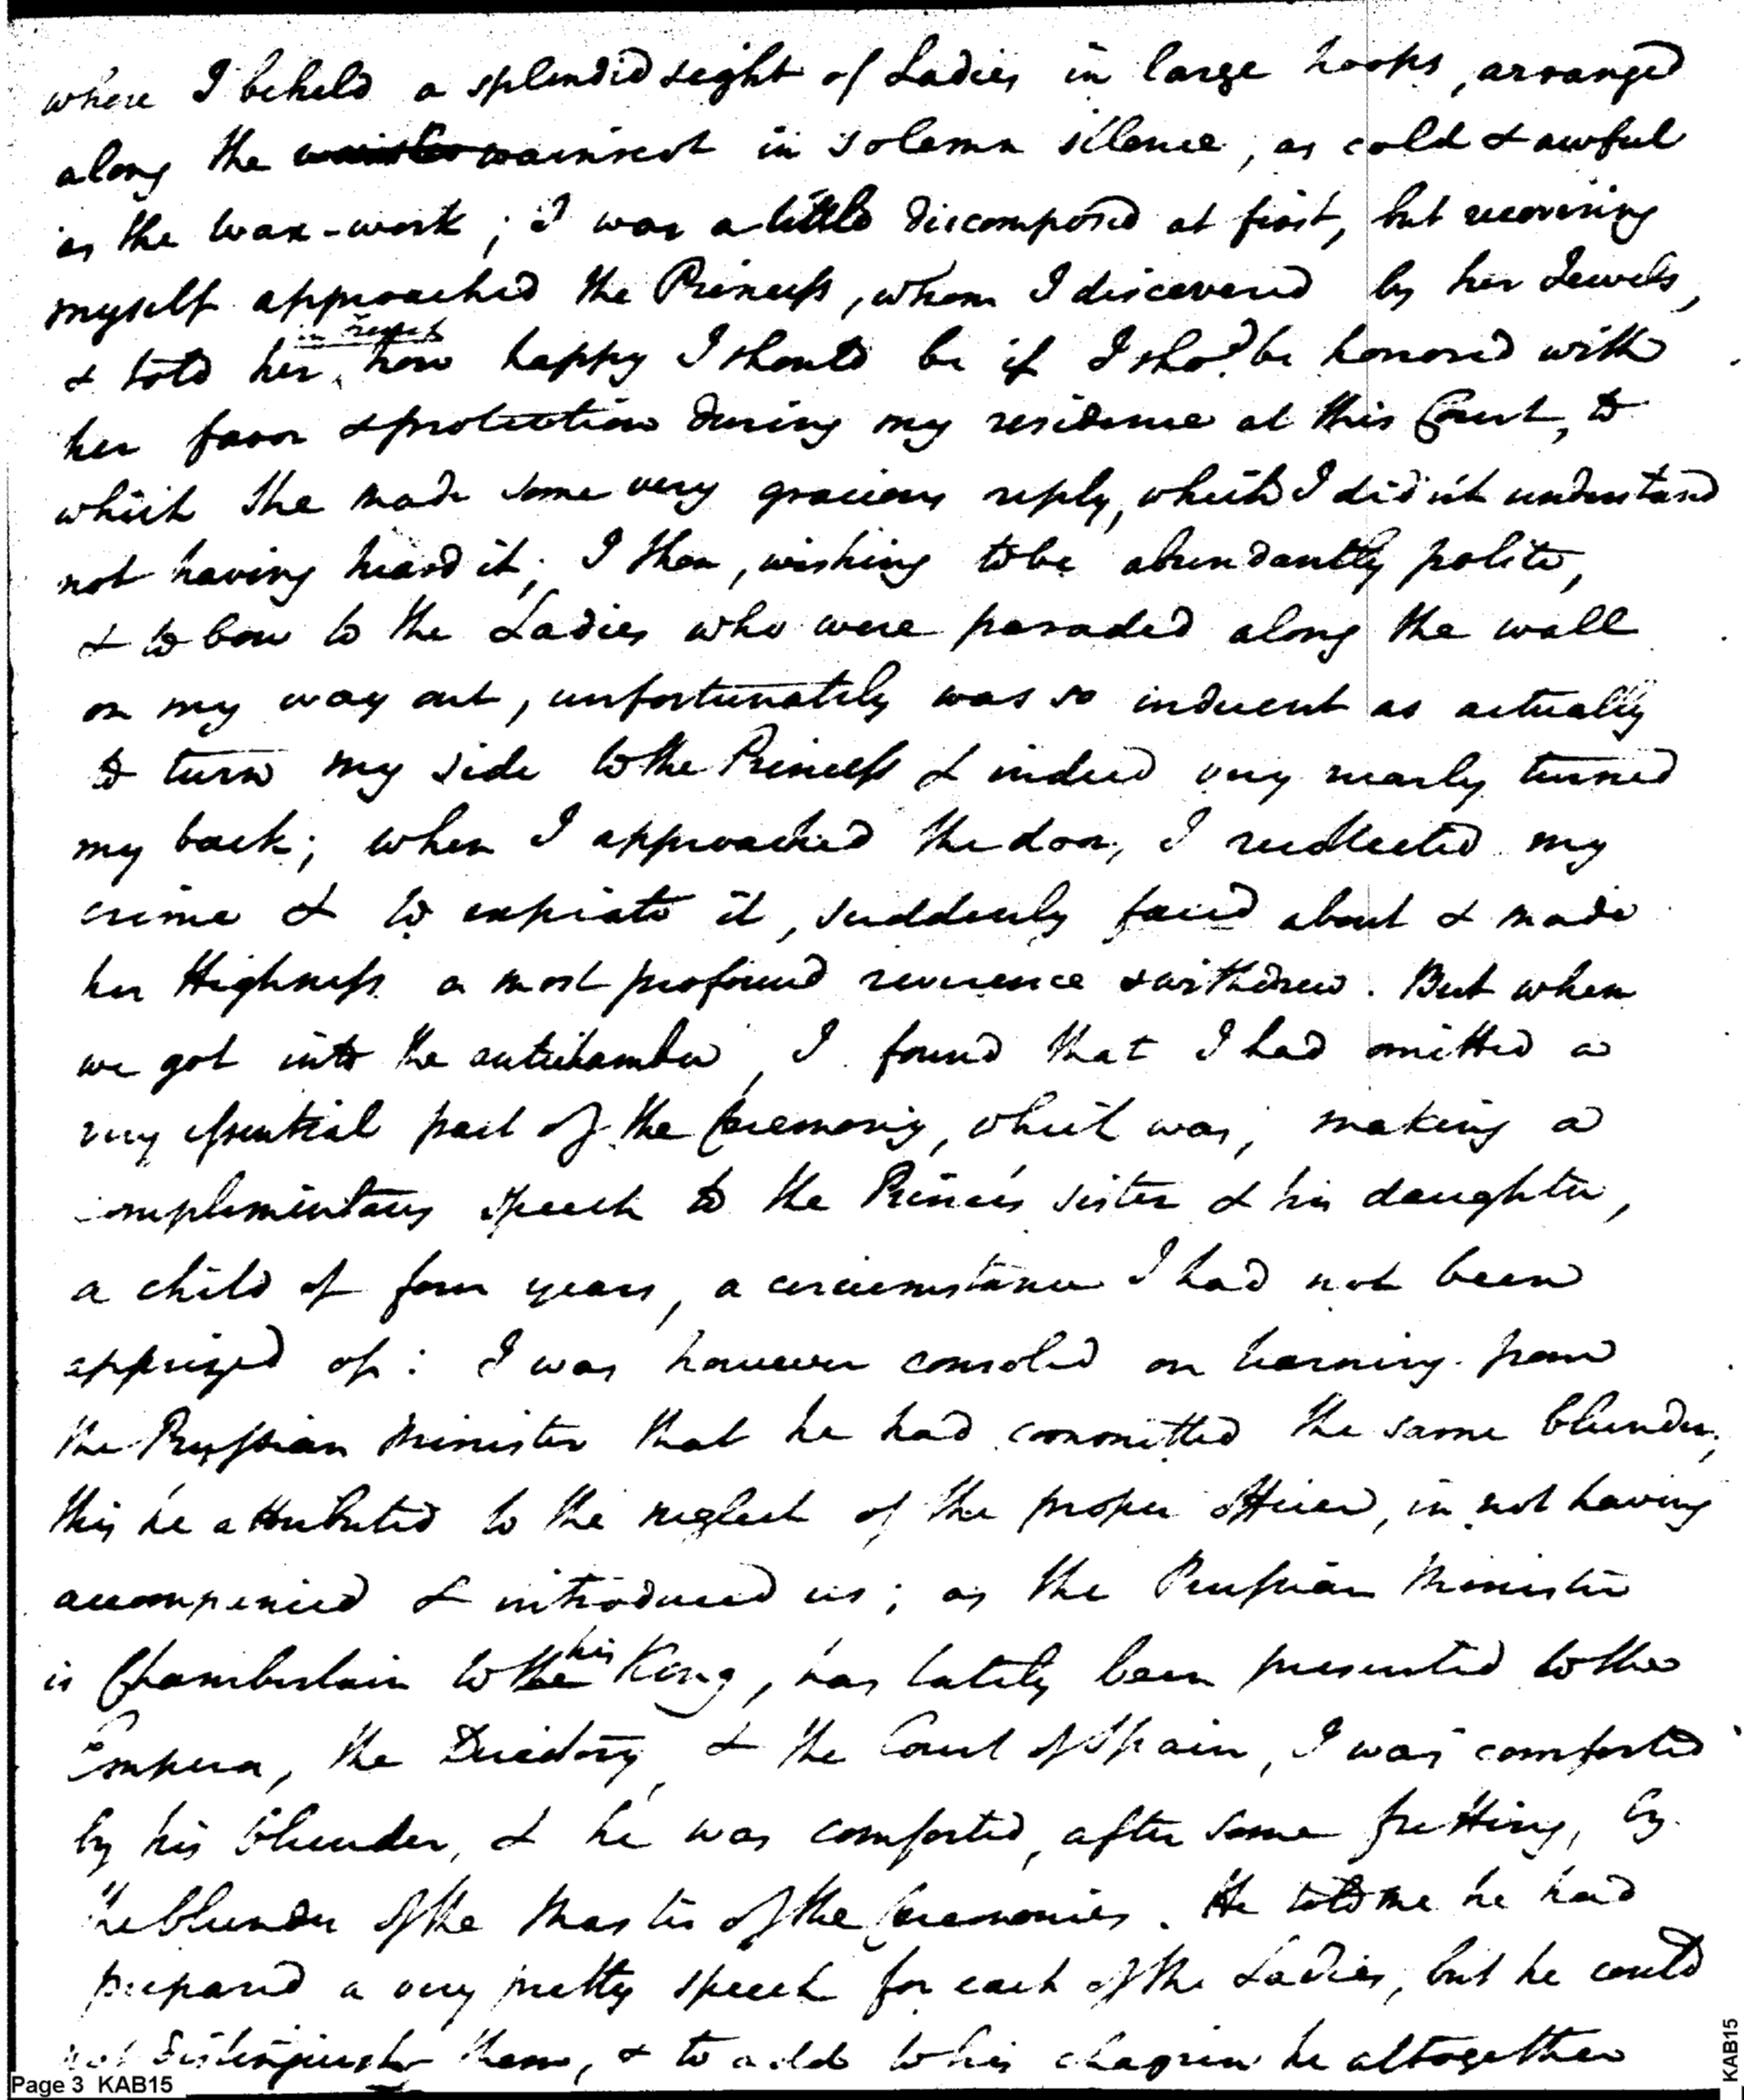 where I beheld a splendid sight of Ladies in large hoops, arranged
along the wainscot in solemn silence, as cold & awful
as the wax-work; I was a little discomposed at first, but recovering
myself approached the Princess, whom I discovered by her Jewels,
in french
& told her, how happy I should be if I shod. be honored with
her favor & protection during my residence at this Court, to
which she made some very gracious reply, which I didn't understand
not having heard it; I then, wishing to be abundantly polite,
& to bow to the Ladies who were paraded along the wall
on my way out, unfortunately was so indecent as actually
to turn my side to the Princess & indeed very nearly turned
my back; when I approached the door, I recollected my
crime & to expiate it, suddenly faced about & made
her Highness a most profound reverence & withdrew. But when
we got into the antichamber, I found that I had omitted a
very essential part of the Ceremony, which was, making a
complimentary speech to the Prince's sister & his daughter,
a child of four years, a circumstance I had not been
apprized of: I was however consoled on learning from
the Prussian Minister that he had committed the same blunder;
this he attributed to the neglect of the proper Officer, in not having
accompanied & introduced us; as the Prussian Minister
his
is Chamberlain to the King, has lately been presented to the
Emperor, the Directory, & the Court of Spain, I was comforted
by his blunder, & he was comforted, after some fretting, by
the blunder of the Master of the Ceremonies. He told me he had
prepared a very pretty speech for each of the Ladies, but he could
not distinguish them, & to add to his chagrin he altogether
Page 3 KAB15
KAB15